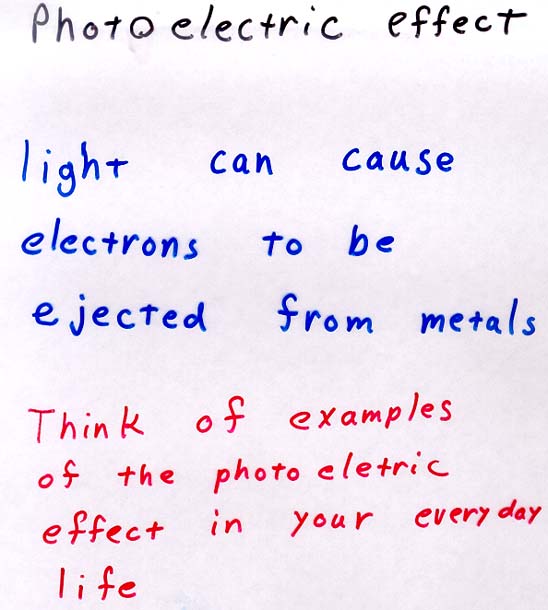 Photoelectric effect
light can cause
electrons to be
ejected from metals
Think of examples
of the photo eletric
effect in your everyday
life